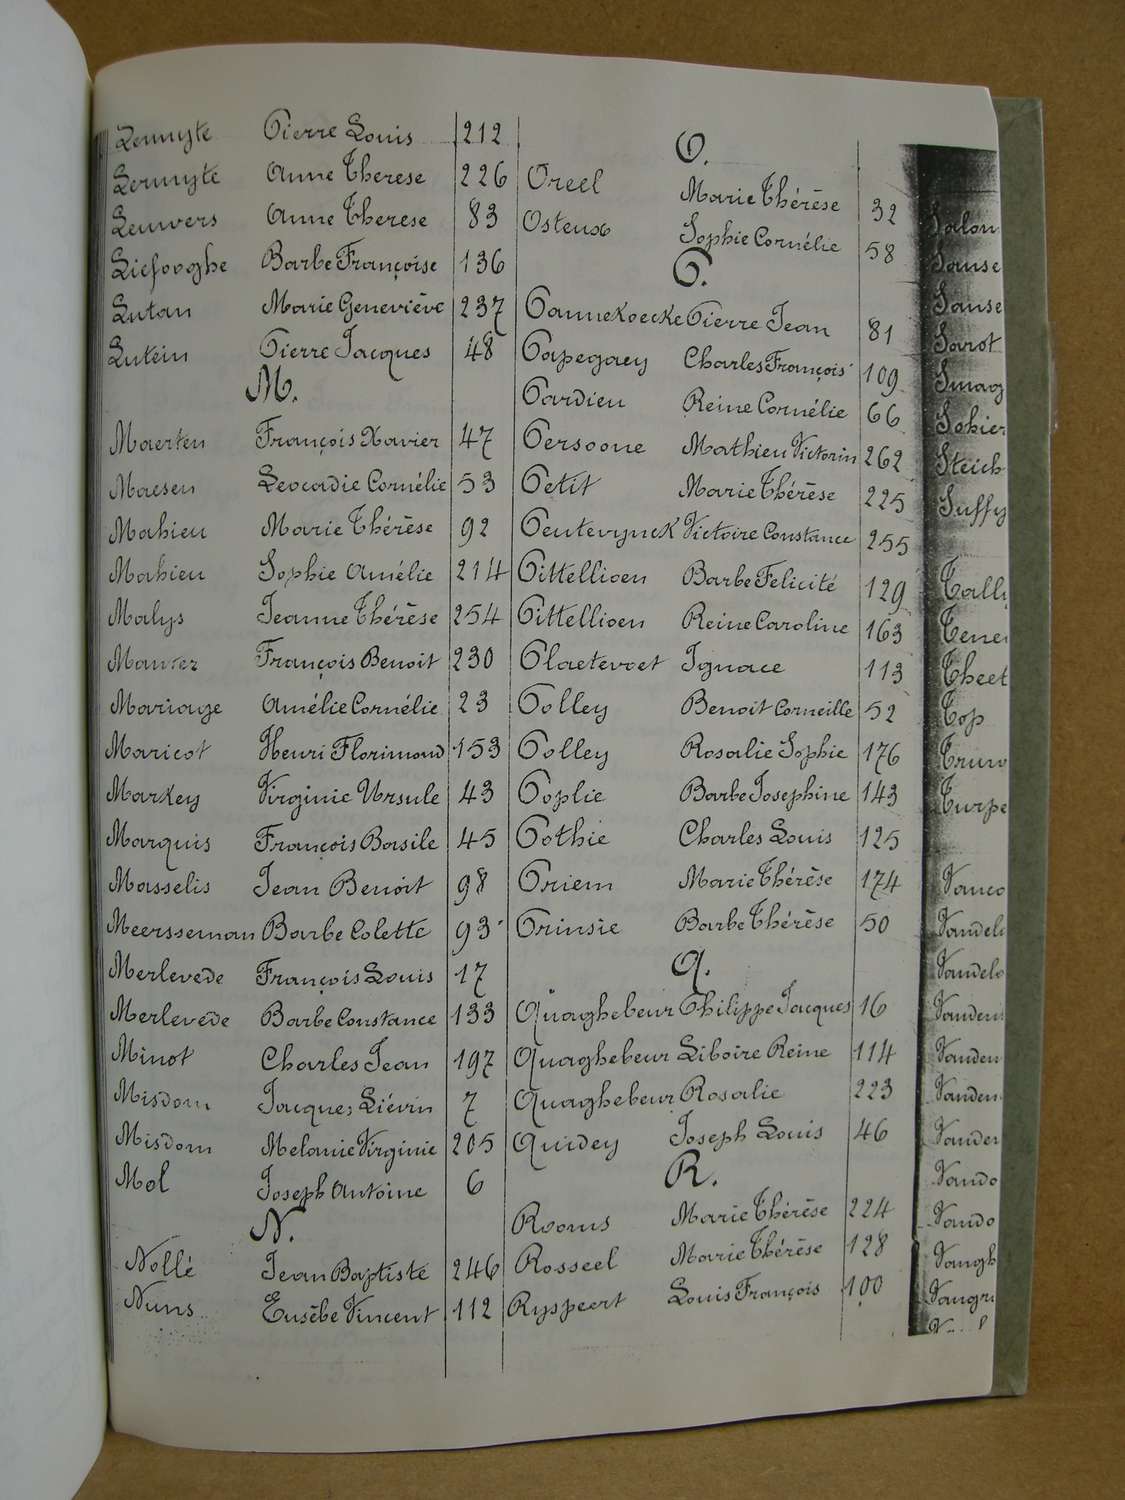 Lermyte Pierre Louis 212
Lermyte Anne Therese 226
Leuwers Anne Therese 83
Liefooghe Barbe Françoise 136
Lutan Marie Geneviève 237
Lutein Pierre Jacques 48
M.
Maerten François Xavier 47
Maesen Leocadie Cornélie 53
Mahieu Marie Thérèse 92
Mahieu Sophie Amélie 214
Malys Jeanne Thérèse 254
François Benoit 230
Mariage Amélie Cornélie 23
Maricot Henri Florimond 153
Markey Virginie Ursule 43
Marquis François Basile 45
Masselis Jean Benoit 98
Meersseman Barbe Colette 93
Merlevede François Louis 17
Merlevede Barbe Constance 133
Minot Charles Jean 197
Misdom Jacques Liévin 7
Misdom Melanie Virginie 205
Mol Joseph Antoine 6
N.
Nollé Jean Baptiste 246
Nuns Eusèbe Vincent 112
O.
Oreel Marie Thérèse 32
Osteux Sophie Cornélie 58
P.
Pannekoecke Pierre Jean 81
Papegaey Charles François 109
Pardieu Reine Cornélie 66
Persoone Mathieu Victorin 262
Petit Marie Thérèse 225
Peuterynck Victoire Constance 255
Pittellioen Barbe Felicité 129
Pittellioen Reine Caroline 163
Plaetevoet Ignace 113
Polley Benoit Corneille 52
Polley Rosalie Sophie 176
Poplie Barbe Josephine 143
Pothie Charles Louis 125
Priem Marie Thérèse 174
Prinsie Barbe Thérèse 50
Q.
Quaghebeur Philippe Jacques 16
Quaghebeur Liboire Reine 114
Quaghebeur Rosalie 223
Quidey Joseph Louis 46
R.
Rooms Marie Thérèse 224
Rosseel Marie Thérèse 128
Ryspeert Louis François 100
Salon
Sanse
Sanse
Sarot
Smag
Sohier
Steich
Suffy
Tally
Tene
Theet
Top
Trun
Turpe
Vanco
Vandel
Vandel
Vanden
Vanden
Vanden
Vander
Vando
Vando
Vangh
Vangr